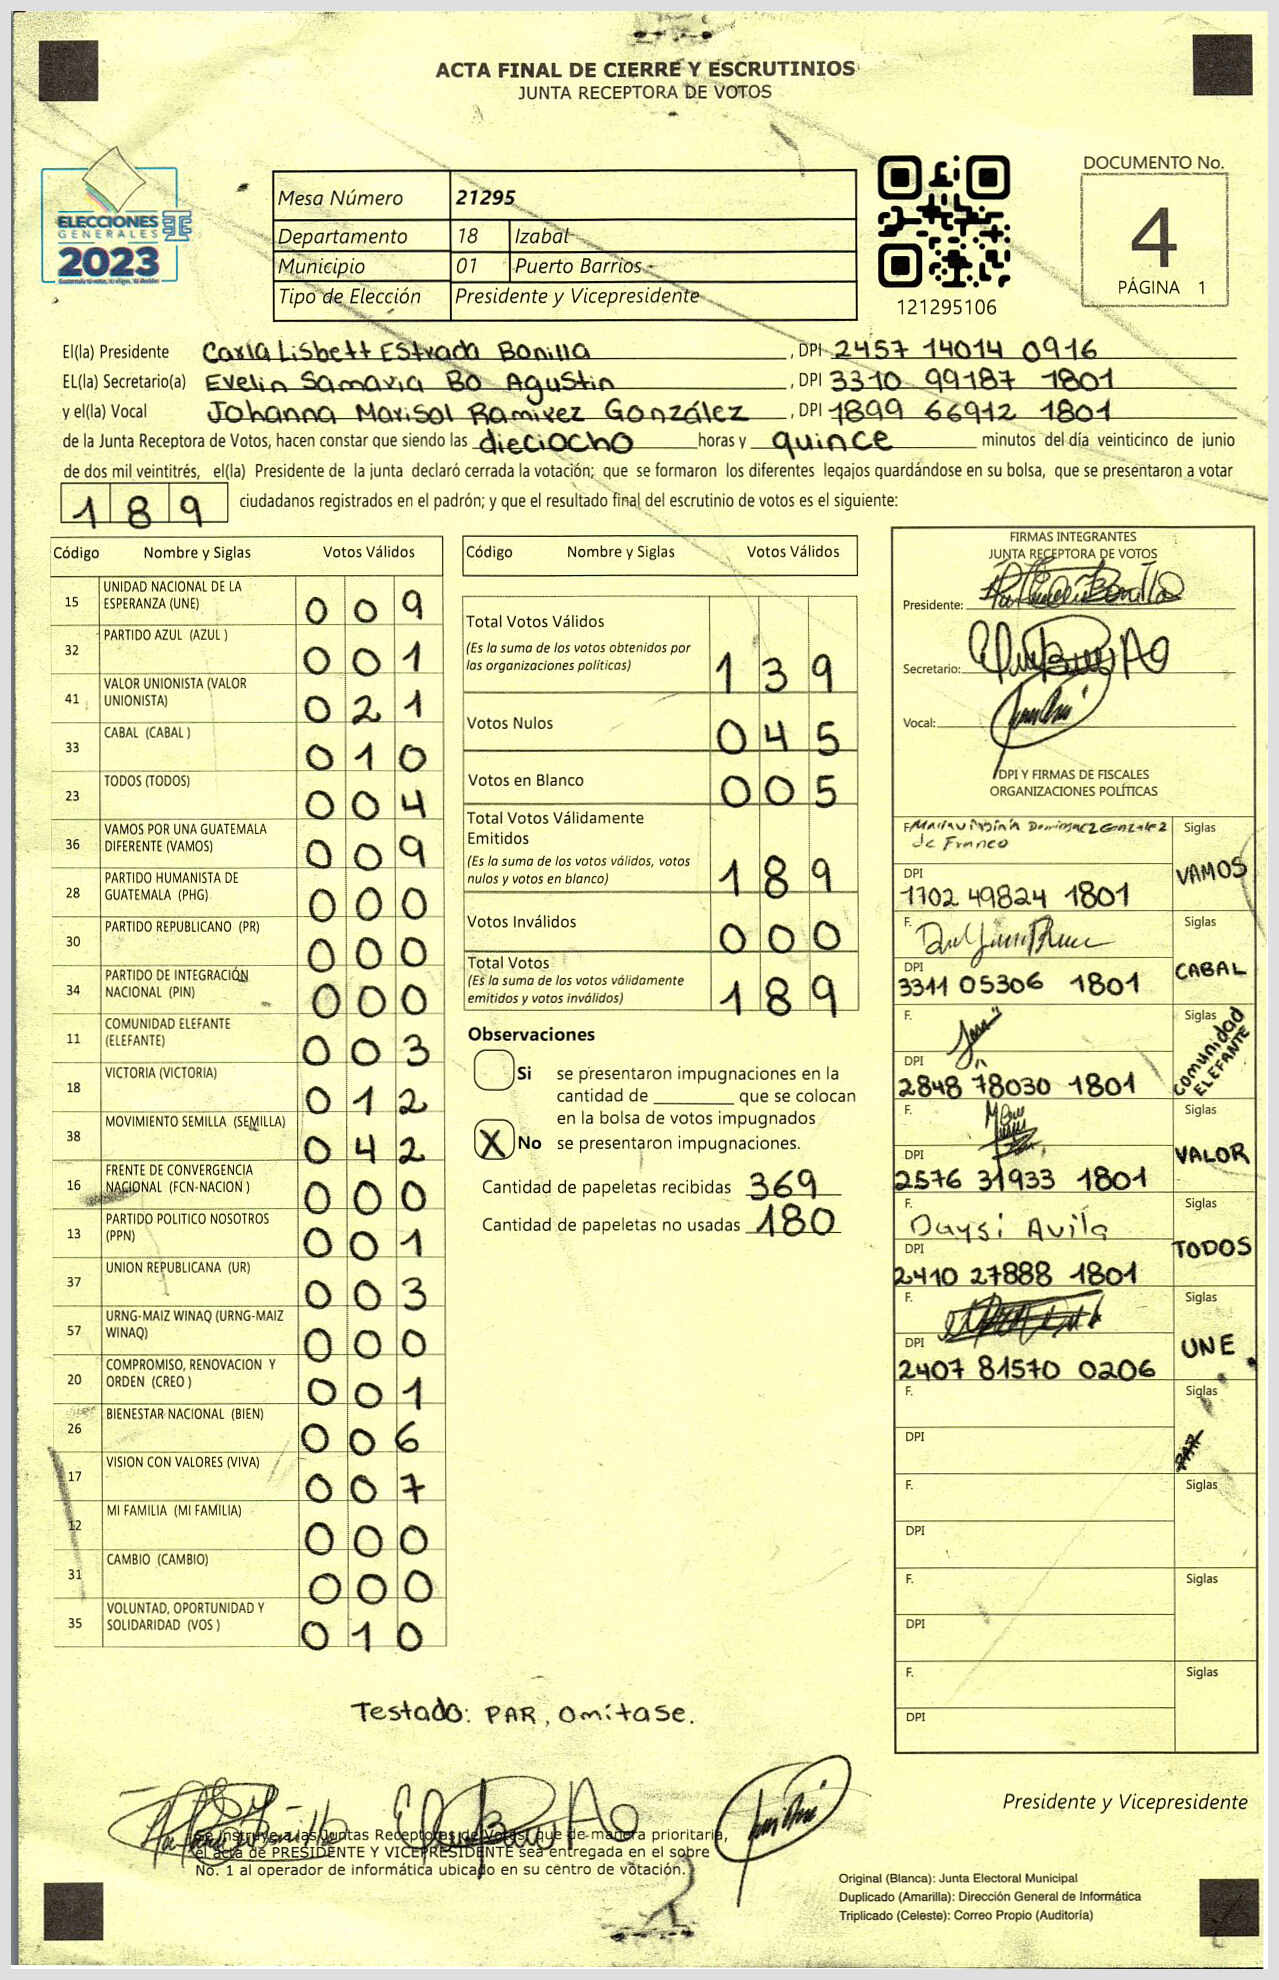 ACTA FINAL DE CIERRE Y ESCRUTINIOS
JUNTA RECEPTORA DE VOTOS
DOCUMENTO No.
4
PÁGINA 1
ELECCIONES
GENERALES
2023
Mesa Número 21295
Departamento 18 Izabal
Municipio 01 Puerto Barrios
Tipo de Elección Presidente y Vicepresidente
121295106
El(la) Presidente Carla Lisbett Estrada Bonilla, DPI 2457 14014 0916
EL(la) Secretario(a) Evelin Samaria Bo Agustin, DPI 3310 99187 1801
y el(la) Vocal Johanna Marisol Ramirez González, DPI 1899 66912 1801
de la Junta Receptora de Votos, hacen constar que siendo las dieciocho horas y quince minutos del día veinticinco de junio
de dos mil veintitrés, el(la) Presidente de la junta declaró cerrada la votación; que se formaron los diferentes legajos guardándose en su bolsa, que se presentaron a votar
189 ciudadanos registrados en el padrón; y que el resultado final del escrutinio de votos es el siguiente:
Código Nombre y Siglas Votos Válidos
15 UNIDAD NACIONAL DE LA ESPERANZA (UNE) 009
32 PARTIDO AZUL (AZUL ) 001
41 VALOR UNIONISTA (VALOR UNIONISTA) 021
33 CABAL (CABAL ) 010
23 TODOS (TODOS) 004
36 VAMOS POR UNA GUATEMALA DIFERENTE (VAMOS) 009
28 PARTIDO HUMANISTA DE GUATEMALA (PHG) 000
30 PARTIDO REPUBLICANO (PR) 000
34 PARTIDO DE INTEGRACIÓN NACIONAL (PIN) 000
11 COMUNIDAD ELEFANTE (ELEFANTE) 003
18 VICTORIA (VICTORIA) 012
38 MOVIMIENTO SEMILLA (SEMILLA) 042
16 FRENTE DE CONVERGENCIA NACIONAL (FCN-NACION ) 000
13 PARTIDO POLITICO NOSOTROS (PPN) 001
37 UNION REPUBLICANA (UR) 003
57 URNG-MAIZ WINAQ (URNG-MAIZ WINAQ) 000
20 COMPROMISO, RENOVACION Y ORDEN (CREO ) 001
26 BIENESTAR NACIONAL (BIEN) 006
17 VISION CON VALORES (VIVA) 007
12 MI FAMILIA (MI FAMILIA) 000
31 CAMBIO (CAMBIO) 000
35 VOLUNTAD, OPORTUNIDAD Y SOLIDARIDAD (VOS ) 010
Código Nombre y Siglas Votos Válidos
Total Votos Válidos
(Es la suma de los votos obtenidos por
las organizaciones políticas) 139
Votos Nulos 045
Votos en Blanco 005
Total Votos Válidamente
Emitidos
(Es la suma de los votos válidos, votos
nulos y votos en blanco) 189
Votos Inválidos 000
Total Votos
(Es la suma de los votos válidamente
emitidos y votos inválidos) 189
Observaciones
Si se presentaron impugnaciones en la
cantidad de ________ que se colocan
en la bolsa de votos impugnados
X No se presentaron impugnaciones.
Cantidad de papeletas recibidas 369
Cantidad de papeletas no usadas 180
FIRMAS INTEGRANTES
JUNTA RECEPTORA DE VOTOS
Presidente:
Secretario:
Vocal:
DPI Y FIRMAS DE FISCALES
ORGANIZACIONES POLÍTICAS
F. Dominguez Gonzalez Siglas
de Franco
DPI VAMOS
1702 49824 1801
F. Siglas
DPI CABAL
3311 05306 1801
F. Siglas
DPI Comunidad ELEFANTE
2848 78030 1801
F. Siglas
DPI VALOR
2576 31933 1801
F. Daysi Avila Siglas
DPI TODOS
2410 27888 1801
F. Siglas
DPI UNE
2407 81570 0206
F. Siglas
DPI PAR
F. Siglas
DPI
F. Siglas
DPI
F. Siglas
DPI
Testado: PAR, Omítase.
Presidente y Vicepresidente
Se instruye a las Juntas Receptoras de Votos, que de manera prioritaria,
el acta de PRESIDENTE Y VICEPRESIDENTE sea entregada en el sobre
No. 1 al operador de informática ubicado en su centro de votación.
Original (Blanca): Junta Electoral Municipal
Duplicado (Amarilla): Dirección General de Informática
Triplicado (Celeste): Correo Propio (Auditoría)